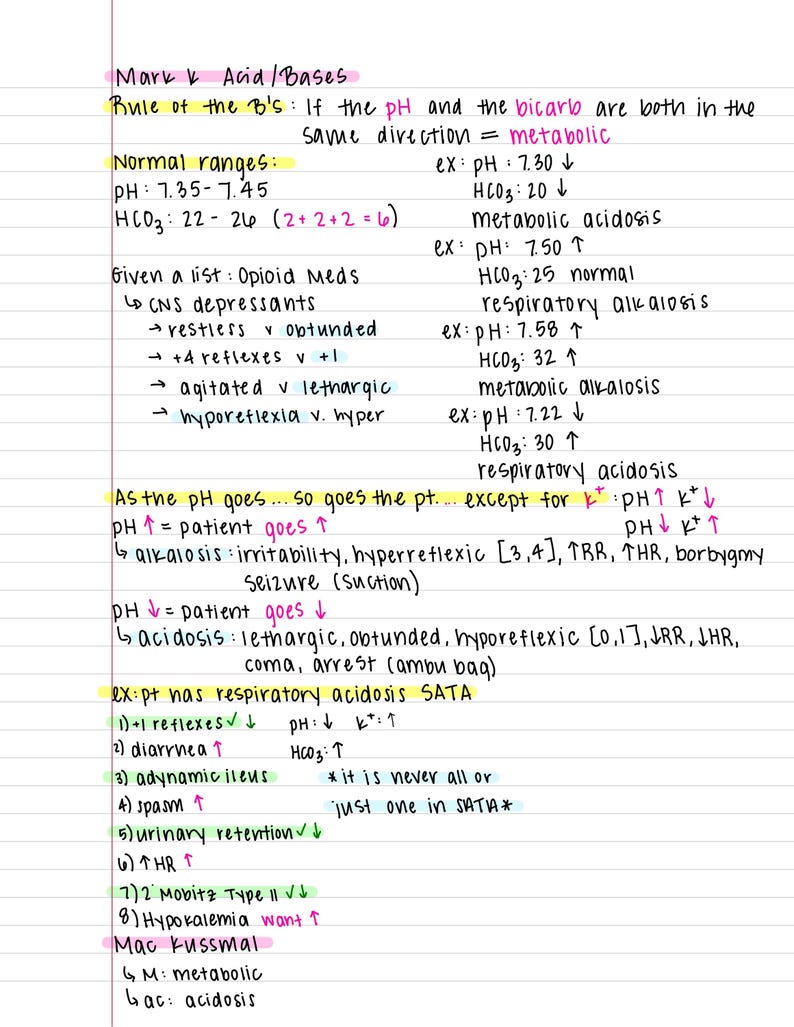 Mark K Acid/Bases
Rule of the B's: If the pH and the bicarb are both in the
same direction = metabolic
Normal ranges:
pH: 7.35-7.45
HCO₃: 22 - 26 (2+2+2 = 6)
ex: pH: 7.30 ↓
HCO₃: 20 ↓
metabolic acidosis
ex: pH: 7.50 ↑
HCO₃: 25 normal
respiratory alkalosis
ex: pH: 7.58 ↑
HCO₃: 32 ↑
metabolic alkalosis
ex: pH: 7.22 ↓
HCO₃: 30 ↑
respiratory acidosis
Given a list: Opioid Meds
↳ CNS depressants
→ restless v obtunded
→ +4 reflexes v +1
→ agitated v lethargic
→ hyporeflexia v. hyper
As the pH goes... so goes the pt.... except for K⁺: pH↑ K⁺↓
pH↓ K⁺↑
pH ↑ = patient goes ↑
↳ alkalosis: irritability, hyperreflexic [3,4], ↑RR, ↑HR, borbygmy
seizure (suction)
pH ↓ = patient goes ↓
↳ acidosis: lethargic, obtunded, hyporeflexic [0,1], ↓RR, ↓HR,
coma, arrest (ambu bag)
ex: pt has respiratory acidosis SATA
1) +1 reflexes ✓ ↓ pH: ↓ K⁺: ↑
2) diarrhea ↑ HCO₃: ↑
3) adynamic ileus *it is never all or
4) spasm ↑ just one in SATA*
5) urinary retention ✓ ↓
6) ↑ HR ↑
7) 2° Mobitz Type II ✓↓
8) Hypokalemia want ↑
Mac Kussmal
↳ M: metabolic
↳ ac: acidosis